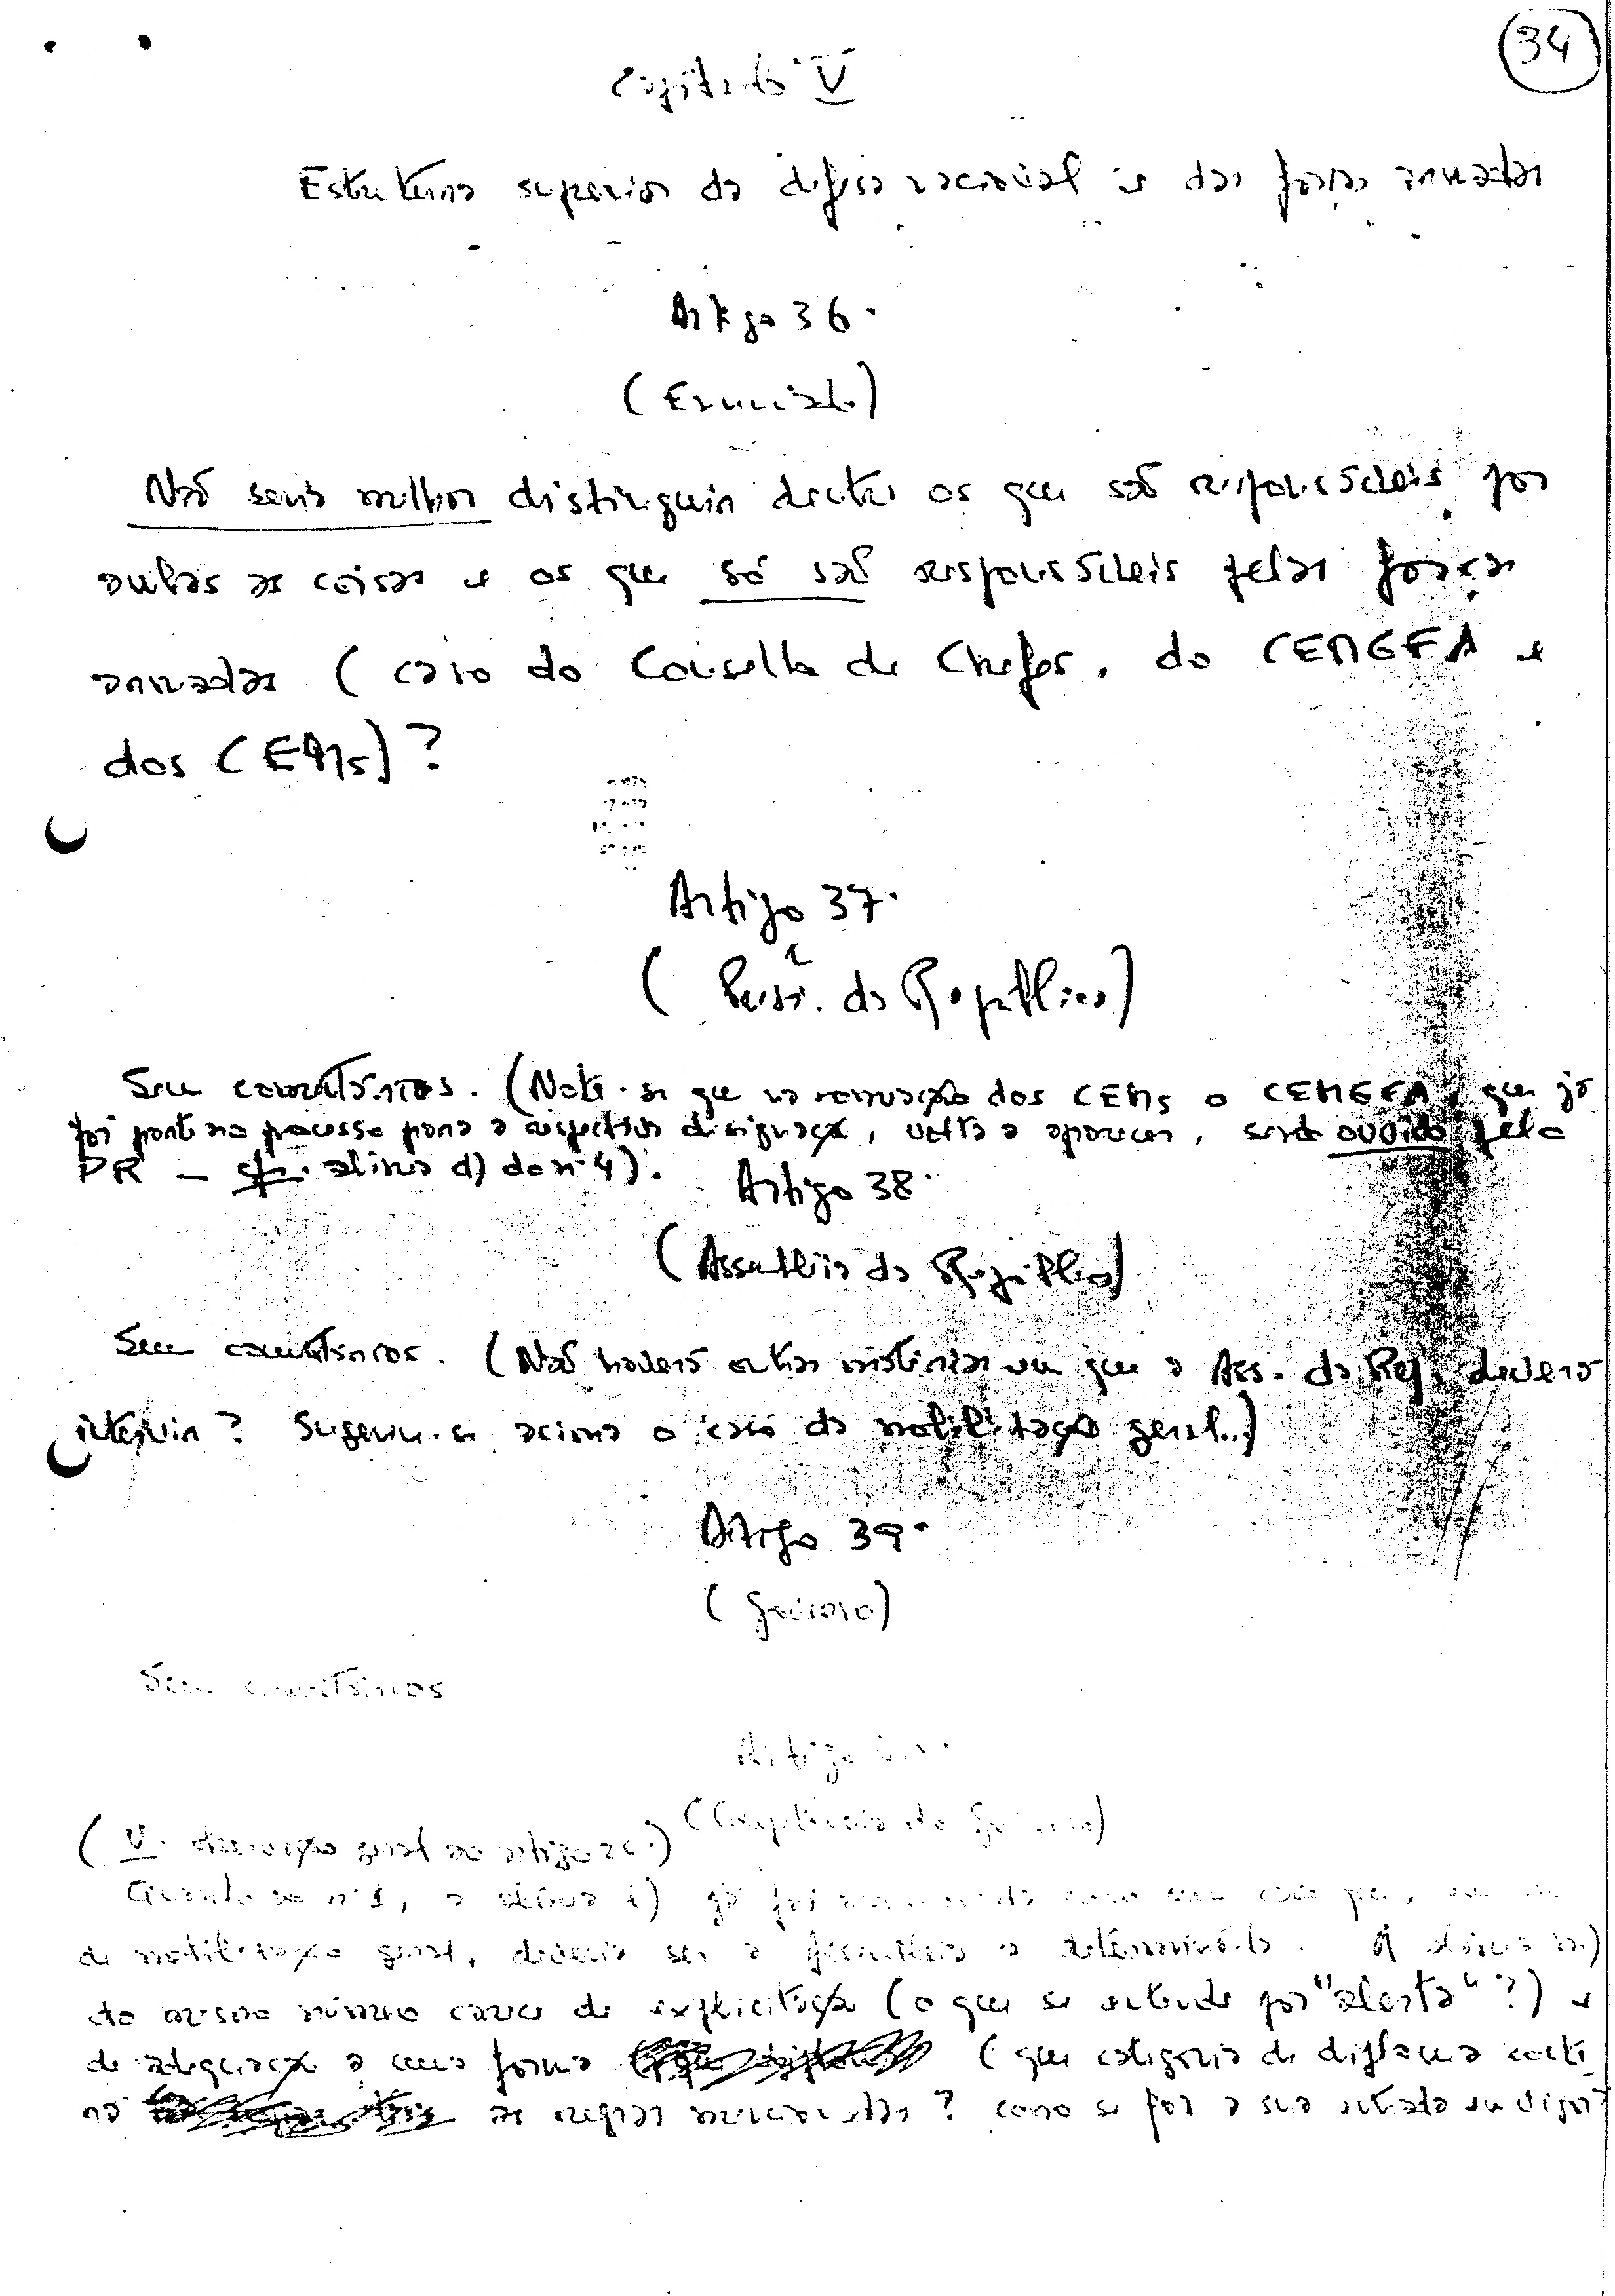 34
Capítulo V
Estrutura superior da defesa nacional e das forças armadas
Artigo 36.
(Enunciado)
Não seria melhor distinguir dentre os que são responsáveis por
ambas as coisas e os que só são responsáveis pelas forças
armadas (caso do Conselho de Chefes, do CEMGFA e
dos CEMs)?
Artigo 37.
(Presi. da República)
Sem comentários. (Note-se que na nomeação dos CEMs o CEMGFA, que já
foi parte no processo para a respectiva designação, volta a aparecer, sendo ouvido pelo
PR — cfr. alínea d) do n.4).
Artigo 38.
(Assembleia da República)
Sem comentários. (Não haverá outras matérias em que a Ass. da Rep. deveria
intervir? Sugeriu-se acima o caso da mobilização geral...)
Artigo 39.
(Governo)
Sem comentários
Artigo 40.
(Competência do Governo)
(V. observação geral ao artigo)
Quanto ao n.1, a alínea i) já foi como um caso que,
de mobilização geral, deveria ser a Assembleia a determiná-la. A alínea m)
do mesmo número carece de explicitação (o que se entende por "alerta"?) e
de adequação a uma forma (que categoria de diploma conte
rá as regras mencionadas? como se faz a sua entrada em vigor?